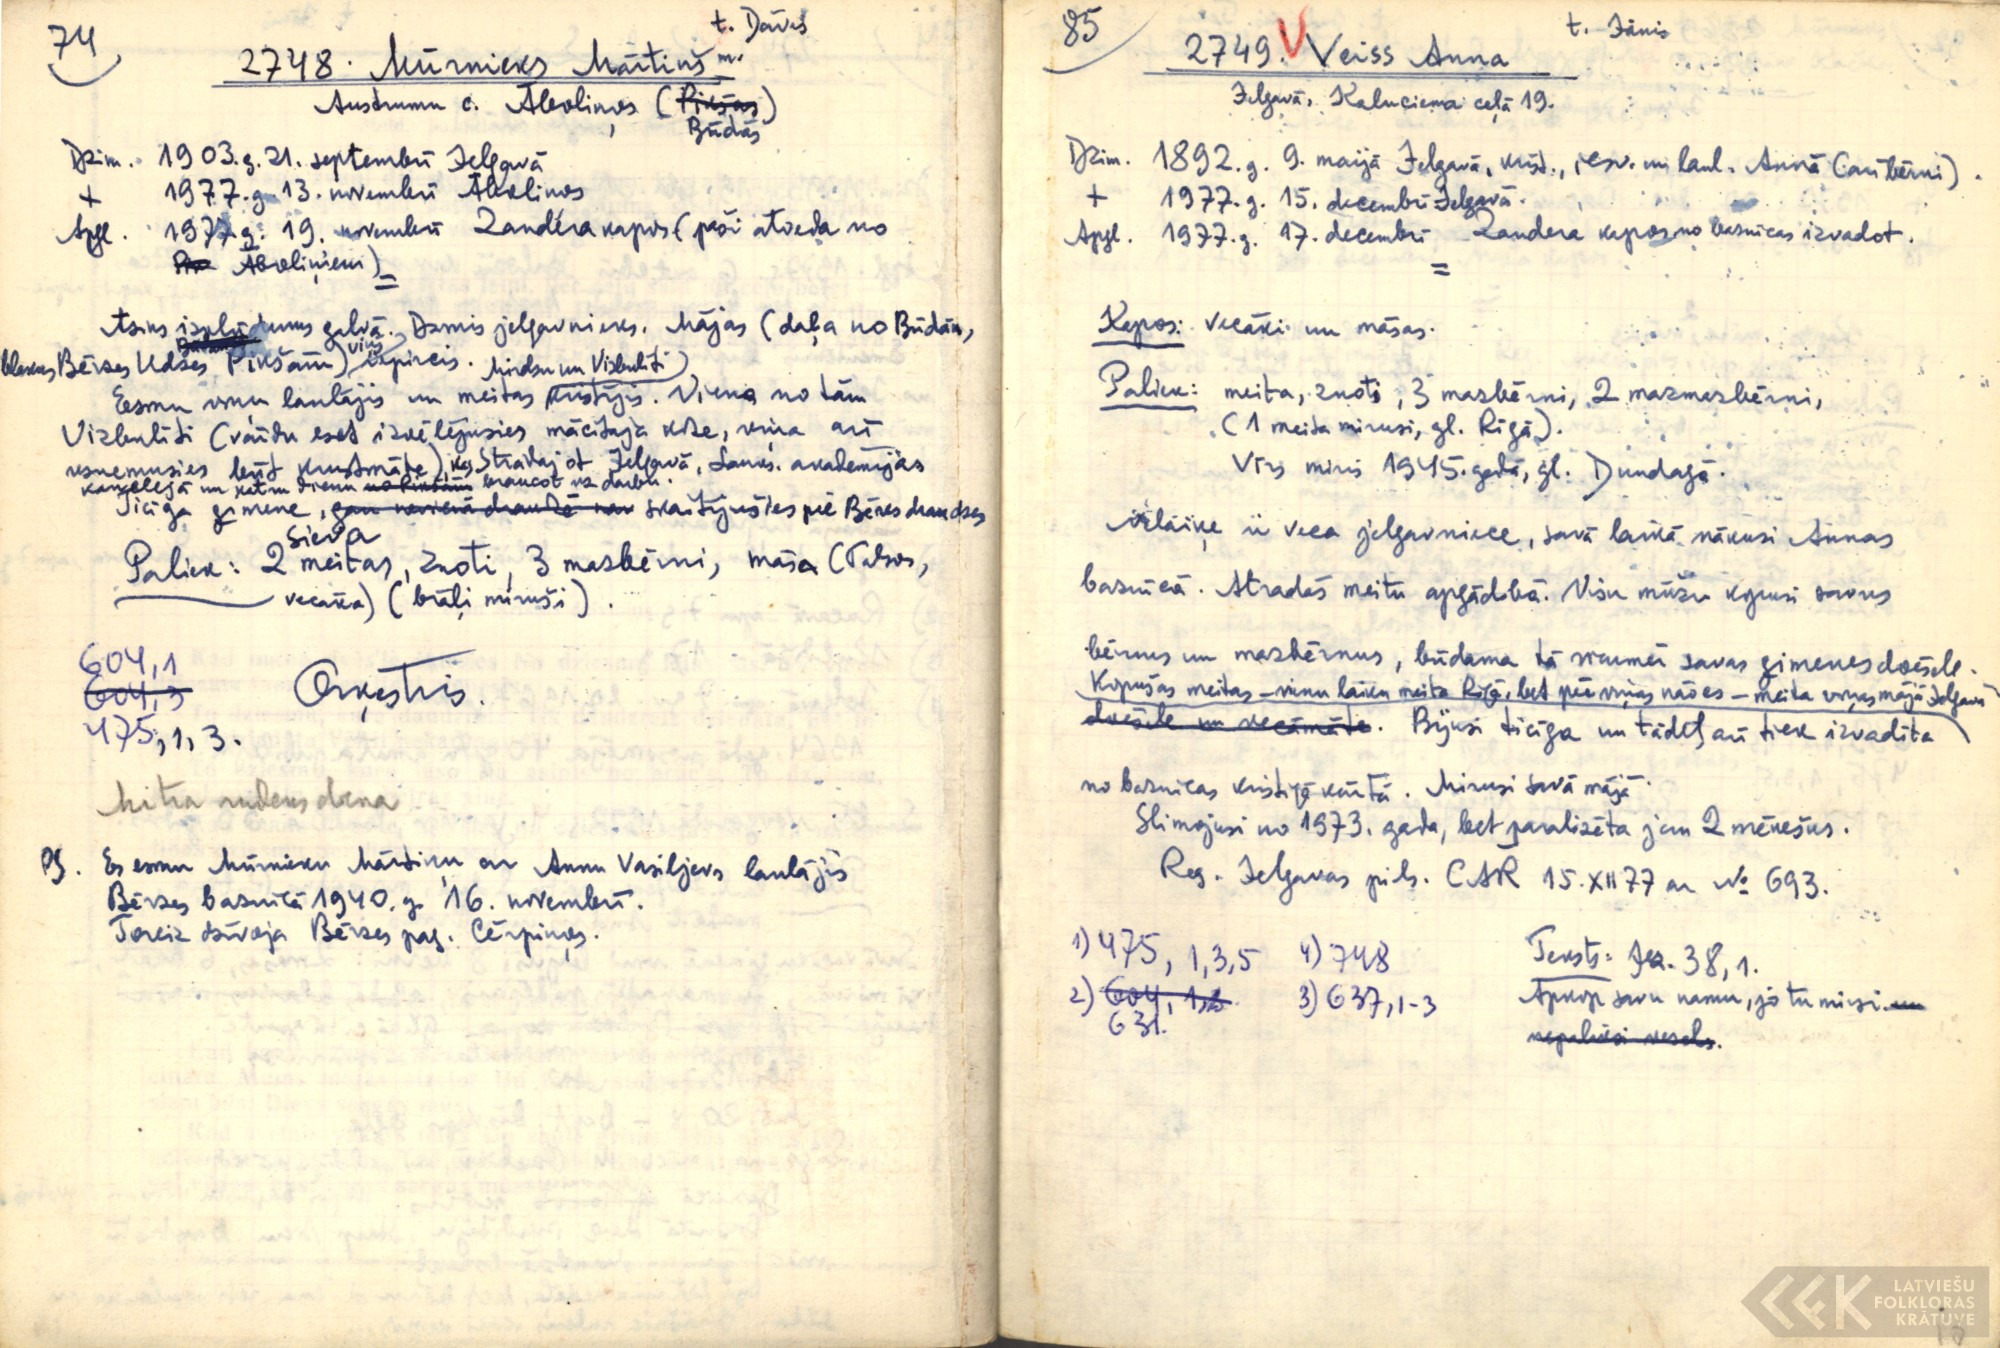 74
t. Dāvis
2748. Mūrnieks Mārtiņš m.
Austrumu c. Āboliņos (Pikšas)
Būdās
Dzim. 1903.g. 21. septembrī Jelgavā
+ 1977.g. 13. novembrī Āboliņos
Apgl. 1977.g. 19. novembrī Zandera kapos (paši atveda no
Āboliņiem)
=
Asins izplūdums galvā. Dzimis jelgavnieks. Mājas (daļa no Būdām,
blakus Bērzes Pikšām) viņš iepircis. Mirdzu un Vizbulīti
Esmu viņu laulājis un meitas kristījis. Viena no tām
Vizbulīti (vārdu esot izvēlējusies mācītāja kdze, viņa arī
uzņēmusies būt krustmāte), kas strādājot Jelgavā, Lauks. akadēmijas
kancelejā un katru dienu no Pikšām braucot uz darbu.
Ticīga ģimene, skaitījušies pie Bērzes draudzes
sieva
Paliek: 2 meitas, znoti, 3 mazbērni, māsa (Talsos,
vecāka) (brāļi miruši).
604,1
604,3
475,1,3.
Orķestris.
Mitra rudens diena
PS. Es esmu Mūrnieku Mārtiņu ar Annu Vasiļjevs laulājis
Bērzes baznīcā 1940.g. 16. novembrī.
Toreiz dzīvoja Bērzes pag. Cērpiņos.
85
t. Jānis
2749. V Veiss Anna
Jelgavā, Kalnciema ceļā 19.
Dzim. 1892.g. 9. maijā Jelgavā, krist., iesv. un laul. Annā (arī bērni).
+ 1977.g. 15. decembrī Jelgavā.
Apgl. 1977.g. 17. decembrī Zandera kapos no baznīcas izvadot.
=
Kapos: vecāki un māsas.
Paliek: meita, znots, 3 mazbērni, 2 mazmazbērni,
(1 meita mirusi, gl. Rīgā).
Vīrs miris 1945. gadā, gl. Dundagā.
ir veca jelgavniece, savā laikā nākusi Annas
baznīcā. Atradās meitu apgādībā. Visu mūžu kopusi savus
bērnus un mazbērnus, būdama tā vienmēr savas ģimenes dvēsele.
Kopušas meitas – vienu laiku meita Rīgā, bet pēc viņas nāves – meita viņas mājā Jelgavā
dvēsele un vecāmāte. Bijusi ticīga un tādēļ arī tiek izvadīta
no baznīcas kristīgā kārtā. Mirusi savā mājā.
Slimojusi no 1973. gada, bet paralizēta jau 2 mēnešus.
Reg. Jelgavas pils. CAR 15.XII 77 ar № 693.
1) 475, 1,3,5
4) 748
2) 604, 1,2
631.
3) 637, 1-3
Teksts: Jez. 38,1.
Apkop savu namu, jo tu mirsi un
nepaliksi vesels.
LATVIEŠU
FOLKLORAS
KRĀTUVE